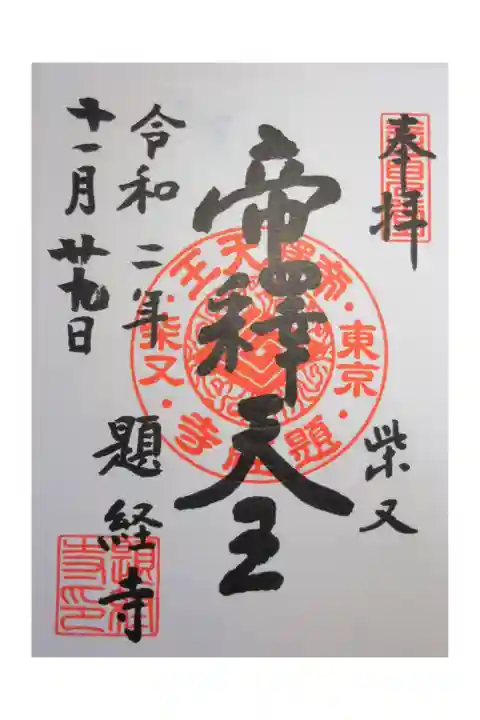 奉拝
柴又
帝釋天王
令和二年
十一月廿九日
題経寺
帝釋天王・東京・題経寺・柴又・
題経寺印